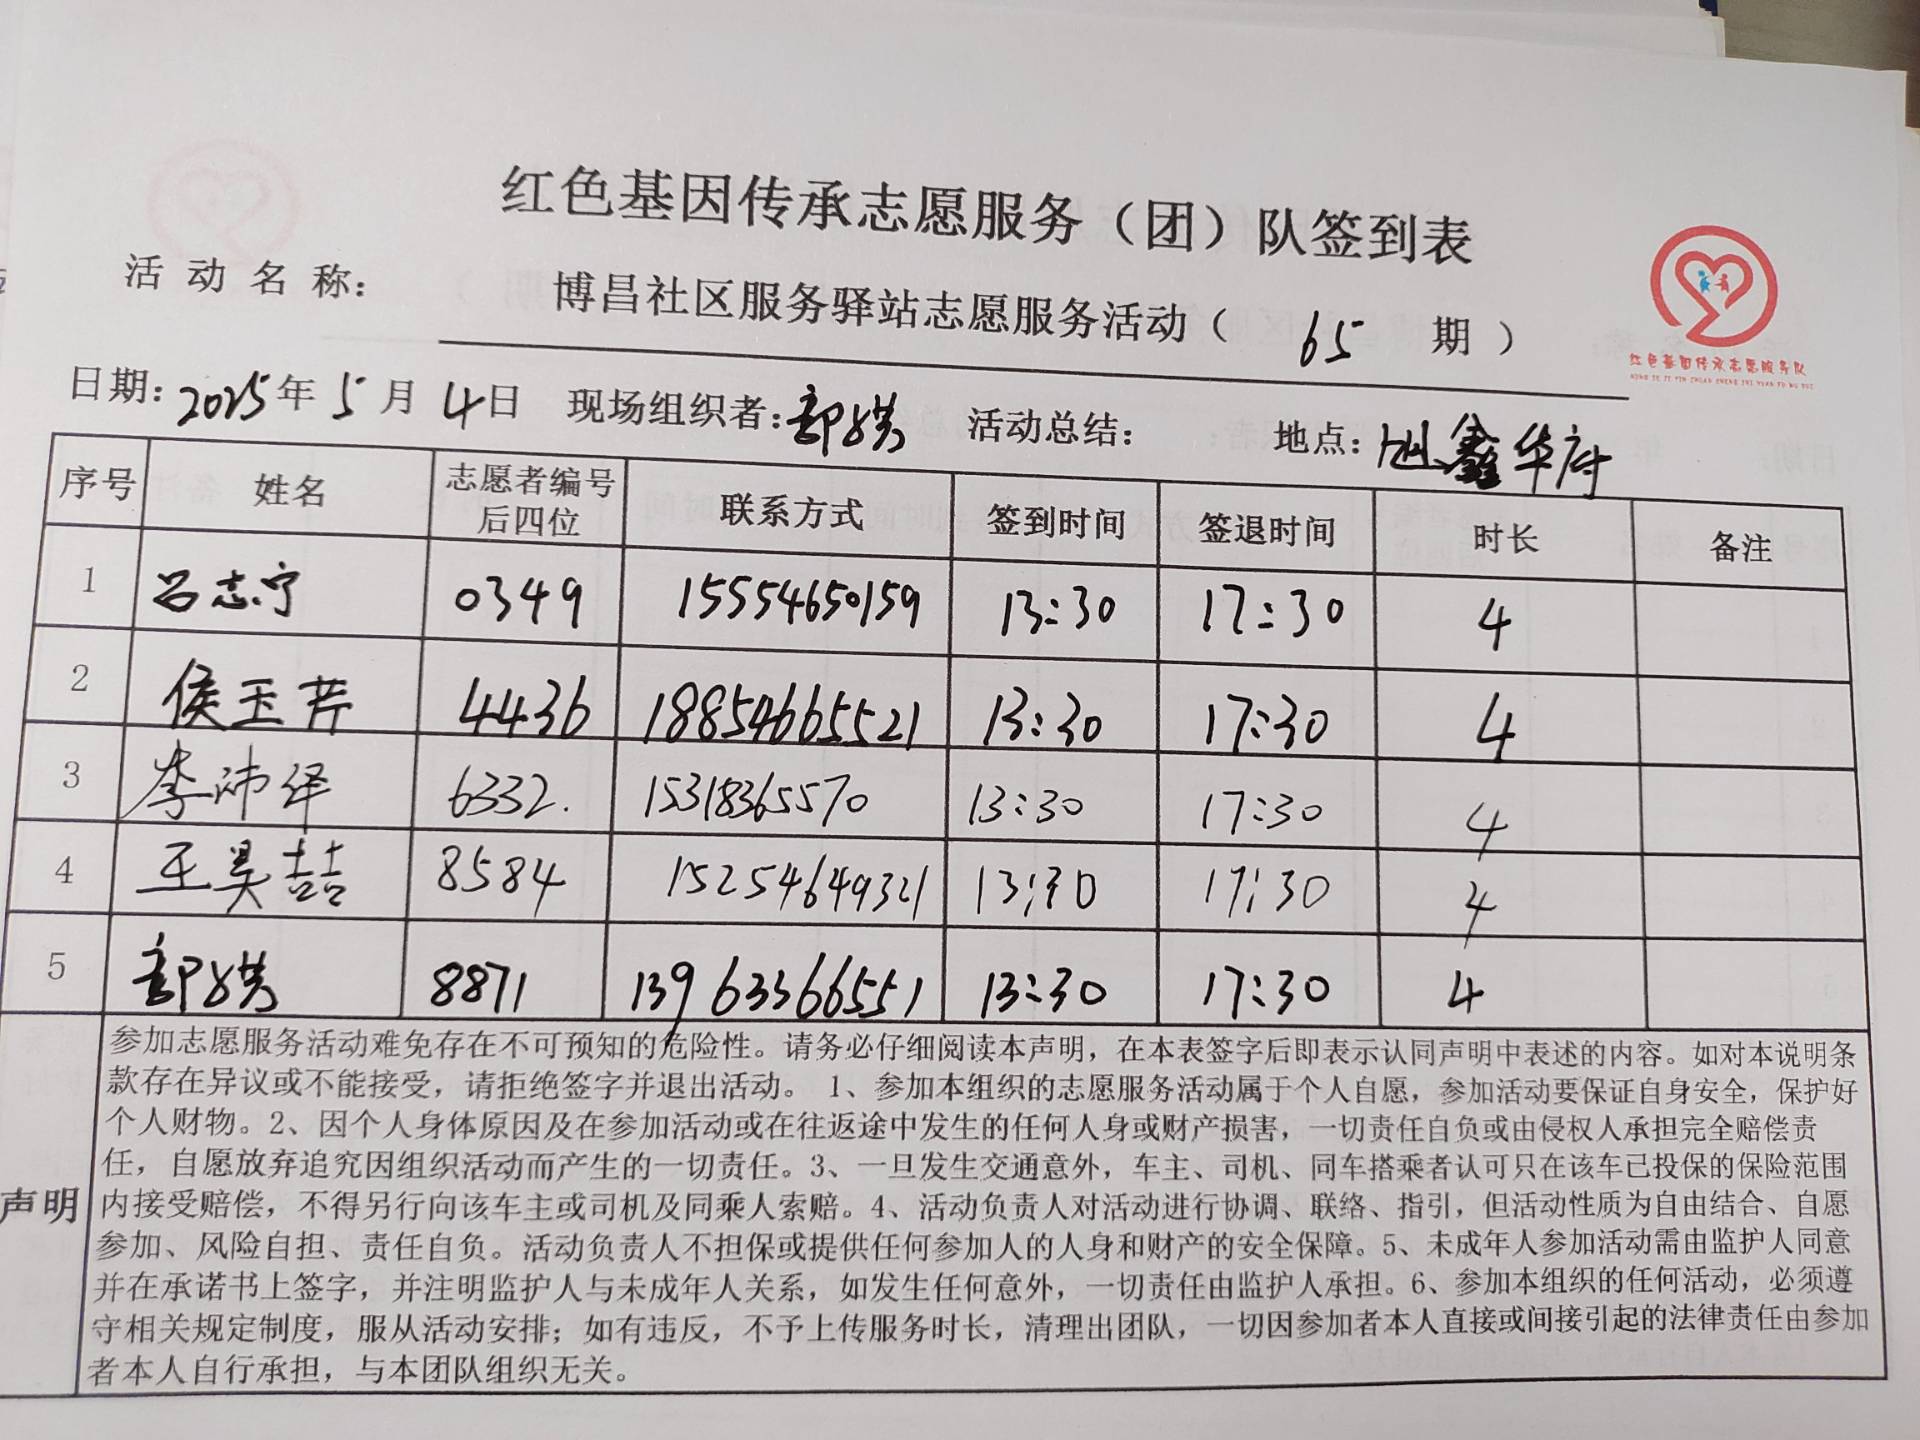 红色基因传承志愿服务（团）队签到表
活动名称： 博昌社区服务驿站志愿服务活动（ 65 期 ）
红色基因传承志愿服务队
HONG SE JI YIN CHUAN CHENG ZHI YUAN FU WU DUI
日期：2025年 5 月 4日 现场组织者： 活动总结： 地点：旭鑫华府
序号 姓名 志愿者编号后四位 联系方式 签到时间 签退时间 时长 备注
1 吕志宁 0349 15554650159 13:30 17:30 4
2 侯玉芹 4436 18854665521 13:30 17:30 4
3 李沛泽 6332. 15318365570 13:30 17:30 4
4 王昊喆 8584 15254649321 13:30 17:30 4
5 8871 13963366551 13:30 17:30 4
声明
参加志愿服务活动难免存在不可预知的危险性。请务必仔细阅读本声明，在本表签字后即表示认同声明中表述的内容。如对本说明条
款存在异议或不能接受，请拒绝签字并退出活动。1、参加本组织的志愿服务活动属于个人自愿，参加活动要保证自身安全，保护好
个人财物。2、因个人身体原因及在参加活动或在往返途中发生的任何人身或财产损害，一切责任自负或由侵权人承担完全赔偿责
任，自愿放弃追究因组织活动而产生的一切责任。3、一旦发生交通意外，车主、司机、同车搭乘者认可只在该车已投保的保险范围
内接受赔偿，不得另行向该车主或司机及同乘人索赔。4、活动负责人对活动进行协调、联络、指引，但活动性质为自由结合、自愿
参加、风险自担、责任自负。活动负责人不担保或提供任何参加人的人身和财产的安全保障。5、未成年人参加活动需由监护人同意
并在承诺书上签字，并注明监护人与未成年人关系，如发生任何意外，一切责任由监护人承担。6、参加本组织的任何活动，必须遵
守相关规定制度，服从活动安排；如有违反，不予上传服务时长，清理出团队，一切因参加者本人直接或间接引起的法律责任由参加
者本人自行承担，与本团队组织无关。